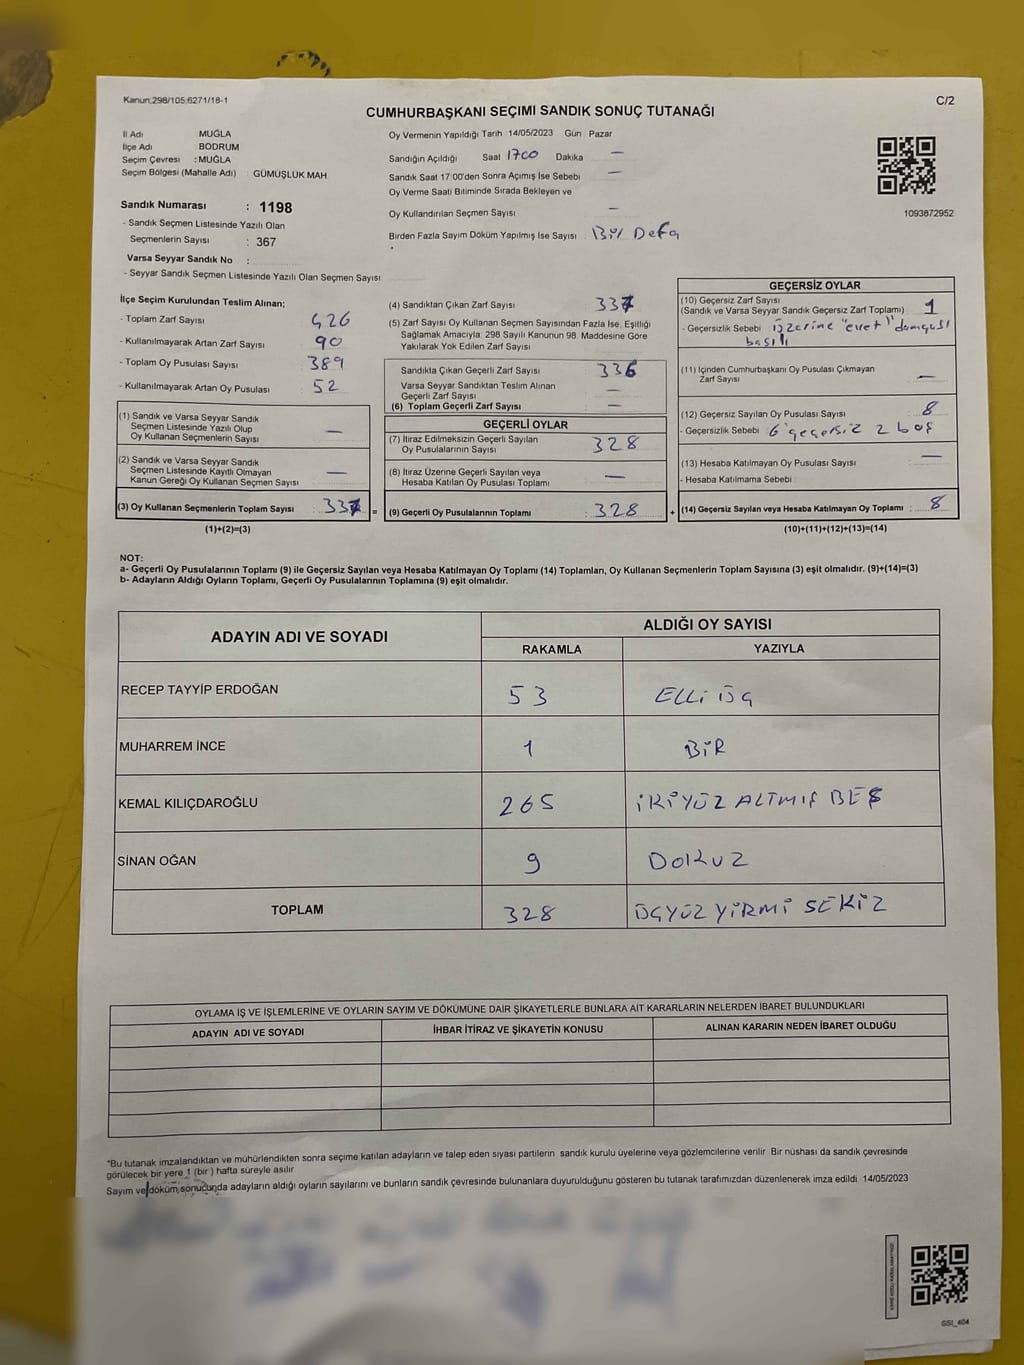 Kanun;298/105;6271/18-1
C/2
CUMHURBAŞKANI SEÇİMİ SANDIK SONUÇ TUTANAĞI
İl Adı MUĞLA
İlçe Adı BODRUM
Seçim Çevresi : MUĞLA
Seçim Bölgesi (Mahalle Adı) GÜMÜŞLÜK MAH
Sandık Numarası : 1198
- Sandık Seçmen Listesinde Yazılı Olan
Seçmenlerin Sayısı : 367
Varsa Seyyar Sandık No :
- Seyyar Sandık Seçmen Listesinde Yazılı Olan Seçmen Sayısı:
Oy Vermenin Yapıldığı Tarih 14/05/2023 Gün Pazar
Sandığın Açıldığı Saat 1700 Dakika —
Sandık Saat 17:00'den Sonra Açımış İse Sebebi —
Oy Verme Saati Bitiminde Sırada Bekleyen ve
Oy Kullandırılan Seçmen Sayısı —
Birden Fazla Sayım Döküm Yapılmış İse Sayısı : Bir Defa
1093872952
İlçe Seçim Kurulundan Teslim Alınan;
- Toplam Zarf Sayısı 426
- Kullanılmayarak Artan Zarf Sayısı 90
- Toplam Oy Pusulası Sayısı 389
- Kullanılmayarak Artan Oy Pusulası 52
(1) Sandık ve Varsa Seyyar Sandık
Seçmen Listesinde Yazılı Olup
Oy Kullanan Seçmenlerin Sayısı —
(2) Sandık ve Varsa Seyyar Sandık
Seçmen Listesinde Kayıtlı Olmayan
Kanun Gereği Oy Kullanan Seçmen Sayısı —
(3) Oy Kullanan Seçmenlerin Toplam Sayısı : 337 =
(1)+(2)=(3)
(4) Sandıktan Çıkan Zarf Sayısı 337
(5) Zarf Sayısı Oy Kullanan Seçmen Sayısından Fazla İse, Eşitliği
Sağlamak Amacıyla; 298 Sayılı Kanunun 98. Maddesine Göre
Yakılarak Yok Edilen Zarf Sayısı
Sandıkta Çıkan Geçerli Zarf Sayısı 336
Varsa Seyyar Sandıktan Teslim Alınan
Geçerli Zarf Sayısı —
(6) Toplam Geçerli Zarf Sayısı —
GEÇERLİ OYLAR
(7) İtiraz Edilmeksizin Geçerli Sayılan
Oy Pusulalarının Sayısı 328
(8) İtiraz Üzerine Geçerli Sayılan veya
Hesaba Katılan Oy Pusulası Toplamı —
(9) Geçerli Oy Pusulalarının Toplamı : 328 +
GEÇERSİZ OYLAR
(10) Geçersiz Zarf Sayısı
(Sandık ve Varsa Seyyar Sandık Geçersiz Zarf Toplamı) 1
- Geçersizlik Sebebi üzerine "evet" damgası
basılı
(11) İçinden Cumhurbaşkanı Oy Pusulası Çıkmayan
Zarf Sayısı —
(12) Geçersiz Sayılan Oy Pusulası Sayısı 8
- Geçersizlik Sebebi 6 geçersiz 2 boş
(13) Hesaba Katılmayan Oy Pusulası Sayısı —
- Hesaba Katılmama Sebebi
(14) Geçersiz Sayılan veya Hesaba Katılmayan Oy Toplamı : 8
(10)+(11)+(12)+(13)=(14)
NOT:
a- Geçerli Oy Pusulalarının Toplamı (9) ile Geçersiz Sayılan veya Hesaba Katılmayan Oy Toplamı (14) Toplamları, Oy Kullanan Seçmenlerin Toplam Sayısına (3) eşit olmalıdır. (9)+(14)=(3)
b- Adayların Aldığı Oyların Toplamı, Geçerli Oy Pusulalarının Toplamına (9) eşit olmalıdır.
ADAYIN ADI VE SOYADI
ALDIĞI OY SAYISI
RAKAMLA YAZIYLA
RECEP TAYYİP ERDOĞAN 53 ELLİ ÜÇ
MUHARREM İNCE 1 BİR
KEMAL KILIÇDAROĞLU 265 İKİYÜZ ALTMIŞ BEŞ
SİNAN OĞAN 9 DOKUZ
TOPLAM 328 ÜÇYÜZ YİRMİ SEKİZ
OYLAMA İŞ VE İŞLEMLERİNE VE OYLARIN SAYIM VE DÖKÜMÜNE DAİR ŞİKAYETLERLE BUNLARA AİT KARARLARIN NELERDEN İBARET BULUNDUKLARI
ADAYIN ADI VE SOYADI İHBAR İTİRAZ VE ŞİKAYETİN KONUSU ALINAN KARARIN NEDEN İBARET OLDUĞU
*Bu tutanak imzalandıktan ve mühürlendikten sonra seçime katılan adayların ve talep eden siyasi partilerin sandık kurulu üyelerine veya gözlemcilerine verilir Bir nüshası da sandık çevresinde
görülecek bir yere 1 (bir ) hafta süreyle asılır
Sayım ve döküm sonucunda adayların aldığı oyların sayılarını ve bunların sandık çevresinde bulunanlara duyurulduğunu gösteren bu tutanak tarafımızdan düzenlenerek imza edildi 14/05/2023
SSİ_404